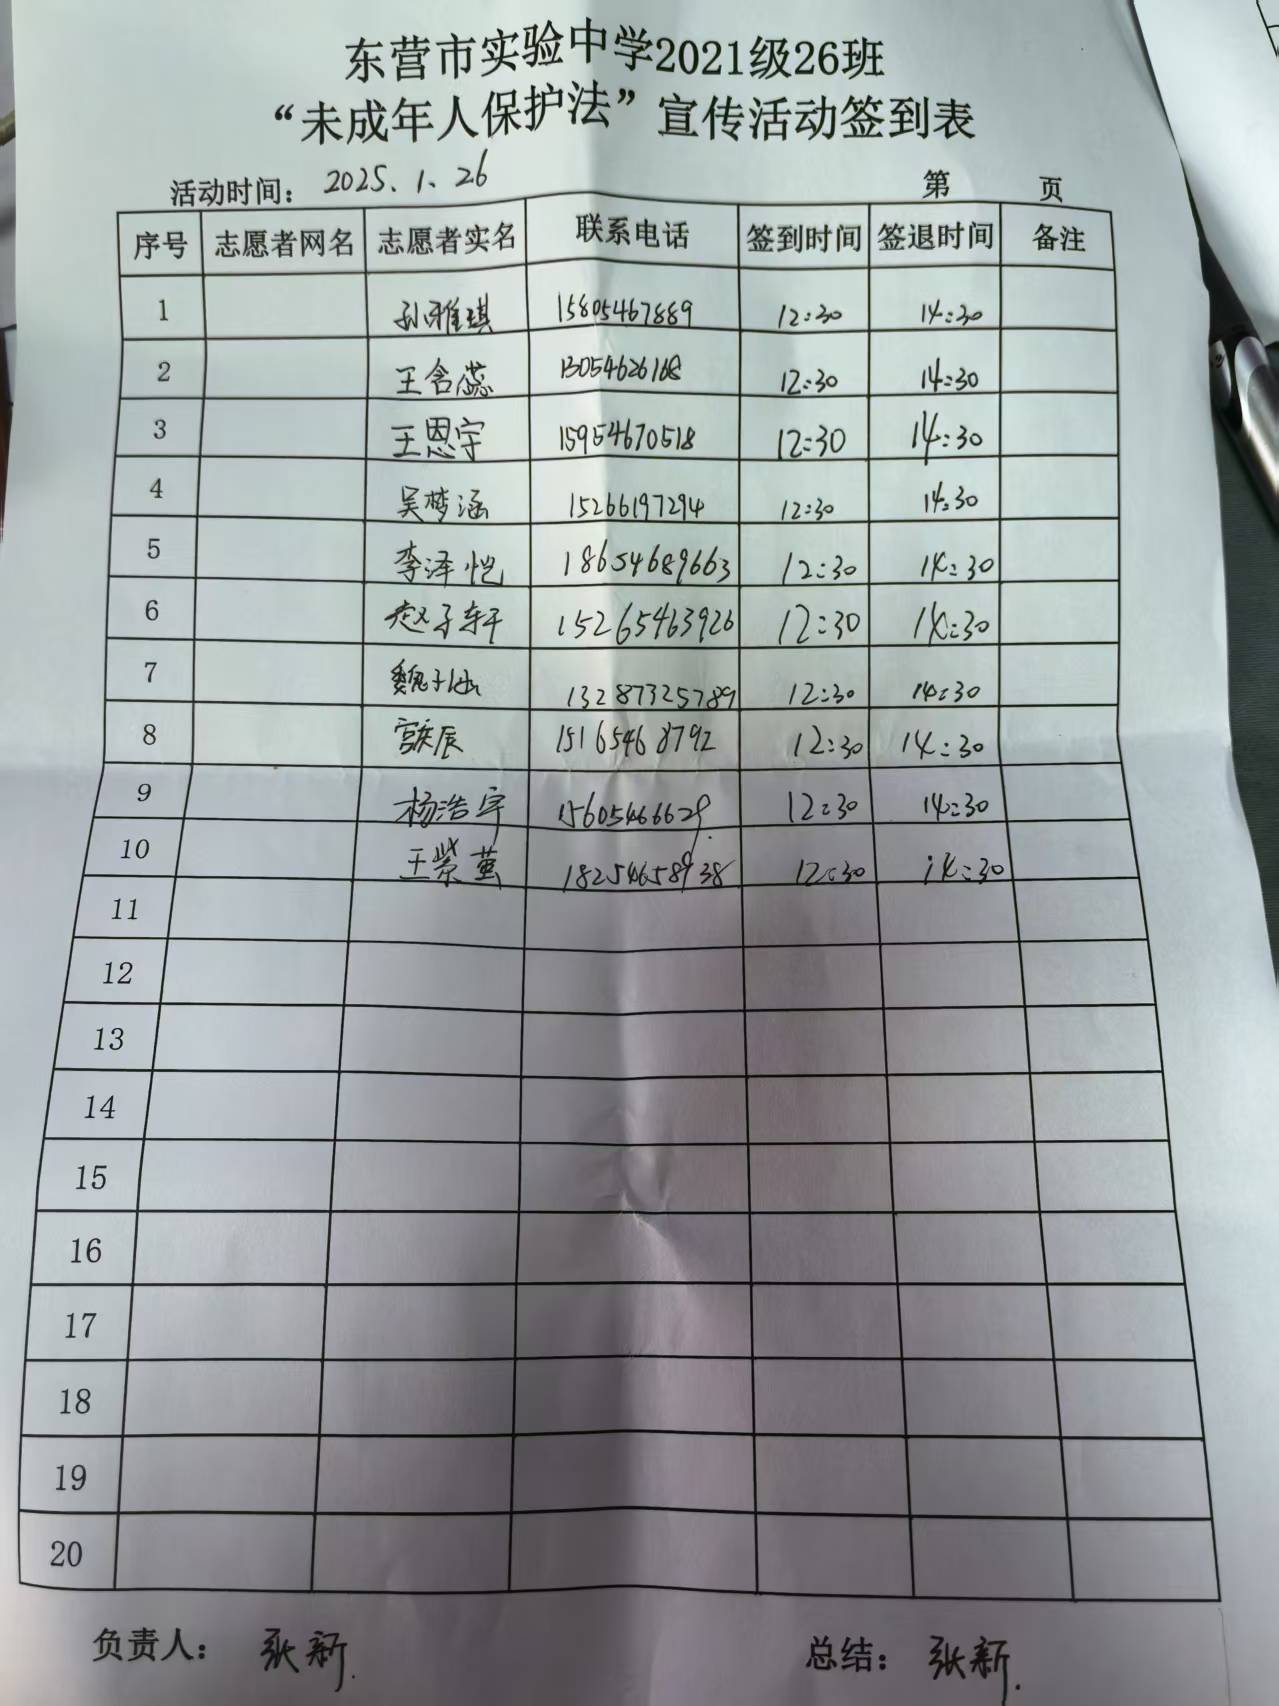 东营市实验中学2021级26班
“未成年人保护法”宣传活动签到表
活动时间: 2025.1.26 第 页
序号 志愿者网名 志愿者实名 联系电话 签到时间 签退时间 备注
1 孙雅琪 15805467889 12:30 14:30
2 王含蕊 13054626168 12:30 14:30
3 王恩宇 15954670518 12:30 14:30
4 吴梦涵 15266197294 12:30 14:30
5 李泽恺 18654689663 12:30 14:30
6 赵子轩 15265463926 12:30 14:30
7 魏子涵 13287325789 12:30 14:30
8 宫庆辰 15165468792 12:30 14:30
9 杨浩宇 12:30 14:30
10 王紫萤 18254658938 12:30 14:30
11
12
13
14
15
16
17
18
19
20
负责人: 张新. 总结: 张新.